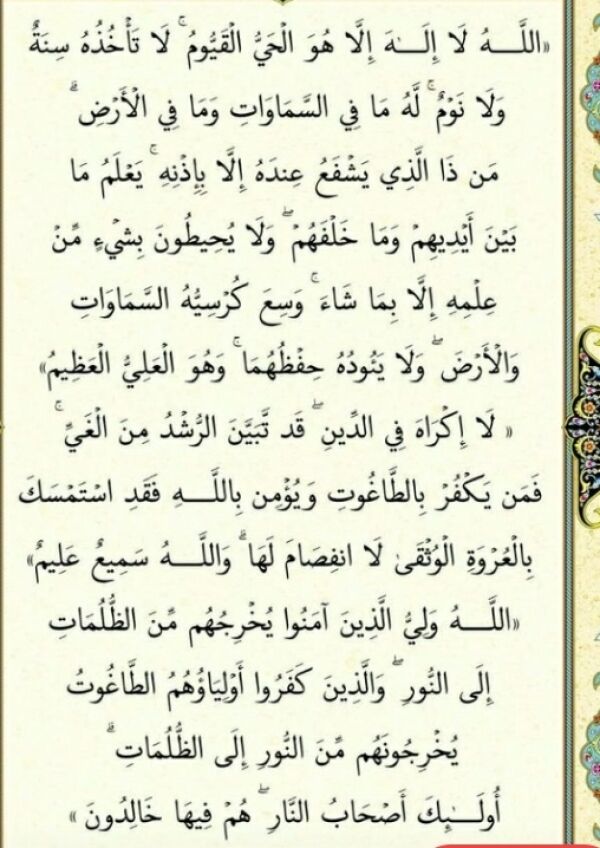 «اللَّـــهُ لَا إِلَـٰهَ إِلَّا هُوَ الْحَيُّ الْقَيُّومُ ۚ لَا تَأْخُذُهُ سِنَةٌ
وَلَا نَوْمٌ ۚ لَّهُ مَا فِي السَّمَاوَاتِ وَمَا فِي الْأَرْضِ ۗ
مَن ذَا الَّذِي يَشْفَعُ عِندَهُ إِلَّا بِإِذْنِهِ ۚ يَعْلَمُ مَا
بَيْنَ أَيْدِيهِمْ وَمَا خَلْفَهُمْ ۖ وَلَا يُحِيطُونَ بِشَيْءٍ مِّنْ
عِلْمِهِ إِلَّا بِمَا شَاءَ ۚ وَسِعَ كُرْسِيُّهُ السَّمَاوَاتِ
وَالْأَرْضَ ۖ وَلَا يَئُودُهُ حِفْظُهُمَا ۚ وَهُوَ الْعَلِيُّ الْعَظِيمُ»
« لَا إِكْرَاهَ فِي الدِّينِ ۖ قَد تَّبَيَّنَ الرُّشْدُ مِنَ الْغَيِّ ۚ
فَمَن يَكْفُرْ بِالطَّاغُوتِ وَيُؤْمِن بِاللَّـــهِ فَقَدِ اسْتَمْسَكَ
بِالْعُرْوَةِ الْوُثْقَىٰ لَا انفِصَامَ لَهَا ۗ وَاللَّـــهُ سَمِيعٌ عَلِيمٌ»
«اللَّـــهُ وَلِيُّ الَّذِينَ آمَنُوا يُخْرِجُهُم مِّنَ الظُّلُمَاتِ
إِلَى النُّورِ ۖ وَالَّذِينَ كَفَرُوا أَوْلِيَاؤُهُمُ الطَّاغُوتُ
يُخْرِجُونَهُم مِّنَ النُّورِ إِلَى الظُّلُمَاتِ ۗ
أُولَـٰئِكَ أَصْحَابُ النَّارِ ۖ هُمْ فِيهَا خَالِدُونَ »